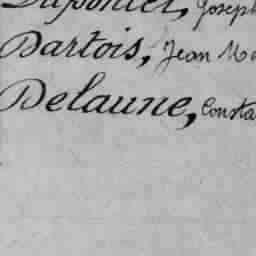 Joseph
Dartois, Jean Ma
Delaune, Consta